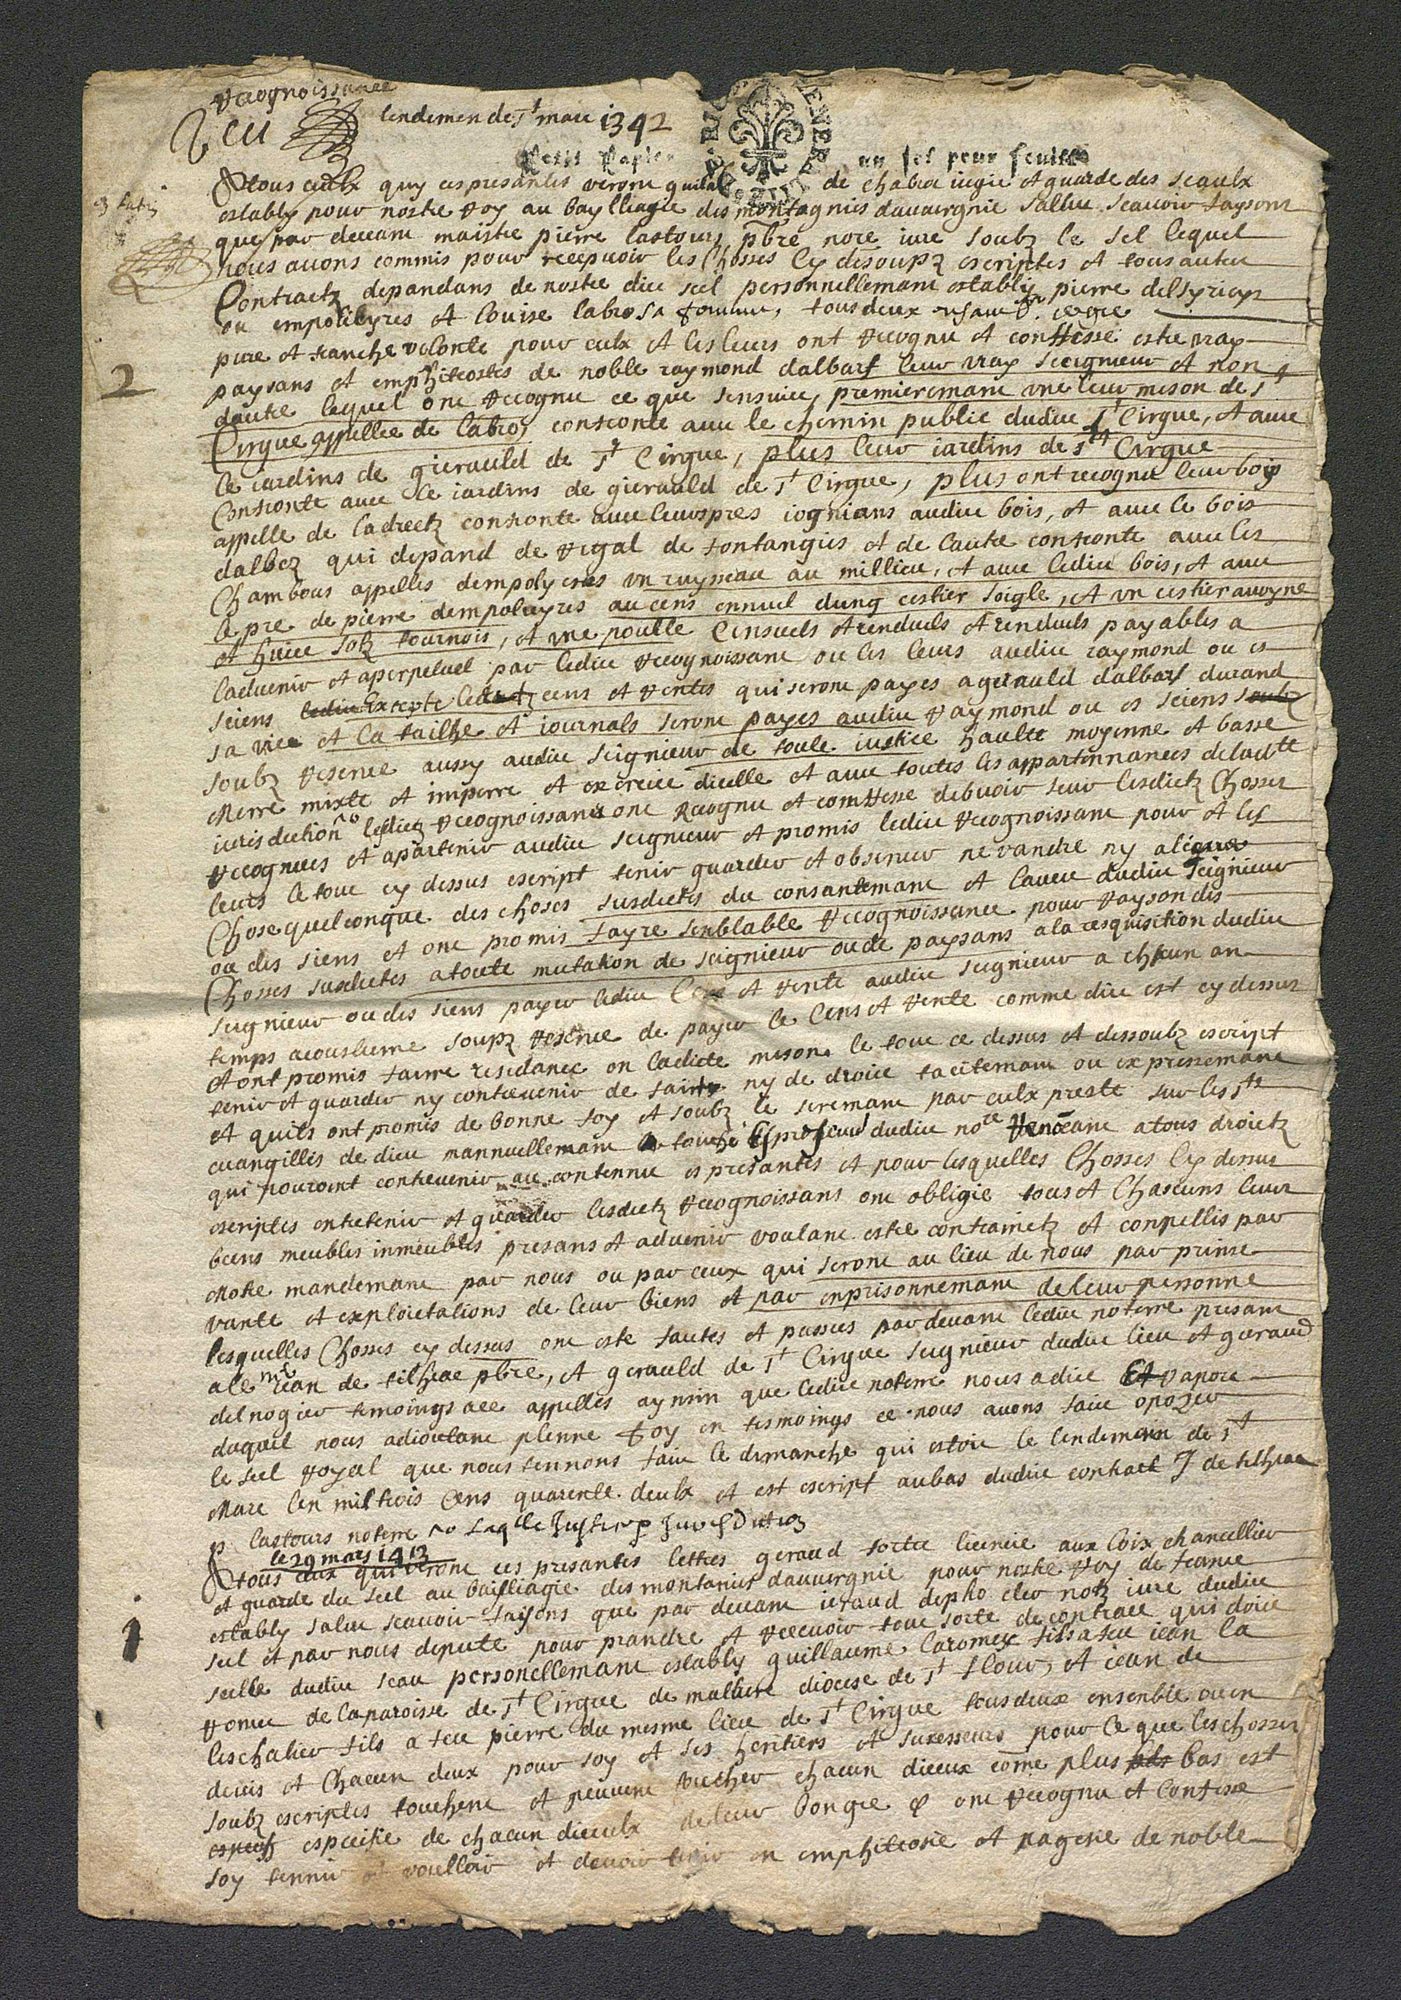 Recognoissance
Veu
lendemen de st marc 1342
Petit Papier
un sol pour feuille
A tous ceulx quy ces presantes veront guil de chabra iugie et guarde des seaulx
estably pour nostre Roy au baylliagie des montagnies dauvergnie sallut scavoir faysons
que par devant maistre pierre lastours pbre nore iure soubz le sel lequel
nous avons commis pour recepvoir les Chosses Cy desoupz escriptes et tous autre
Contractz depandans de nostre dict seel personnellemant estably pierre
ou empoleyres et louise labro sa femme, tous deux ensamble
pure et franche volonte pour eulx et les leurs ont recognu et confesse estre vray
paysans et emphiteostes de noble raymond dalbars leur vray seignieur et non
dautre lequel ont recognu ce que sensuict, premieremant une leur meson de st
Cirgue appellee de labro, confronte avec le chemin public dudict st Cirgue, et avec
le iardins de gierauld de st Cirgue, plus leur iardins de st Cirgue
Confronte avec le iardins de gierauld de st Cirgue, plus ont recognu leur bois
appelle de ladreetz confronte avec leurs pres iognians audict bois, et avec le bois
dalbez qui depand de rigal de fontangies et de lautre confronte avec les
Chambous appelles dempolyeres un ruysseau au millieu, et avec ledict bois, et avec
le pre de pierre dempoleyres au cens ennuel dung cestier soigle, et un cestier avoyne
et huict solz tournois, et une poulle Censuels et renduels et renduels payables a
ladvenir et a perpetuel par ledict recognoissant ou les leurs audict raymond ou es
seiens ledict Excepte cens et rentes qui seront payes a gerauld dalbars durand
sa vie et la tailhe et iournals seront payes audict Raymond ou es seiens soubz
soubz reserve aussy audict seignieur de toute iustice haulte moyenne et basse
Merre mixte et imperre et exercice dicelle et avec toutes les appartennances de laditte
iurisdiction lesdictz recognoissans ont Recognu et comffesse debvoir seur lesdictz Chosses
recognues et apartenir audict seignieur et promis ledict recognoissant pour et les
leurs le tout cy dessus escript tenir guarder et observer ne vandre ny
Chose quelconque des choses susdictes du consantemant et laveu dudict seignieur
ou des siens et ont promis fayre senblable recognoissance pour rayson des
Chosses susdictes a toute mutation de seignieur ou de paysans a la resquisition dudict
seignieur ou des siens payer ledict Cens et rente audict seignieur a chacun an
temps acoustume soupz reserve de payer le Cens et rente comme dict est cy dessus
et ont promis faire residance en ladicte meson le tout ce dessus et dessoubz escript
tenir et guarder ny contrevenir de faict ny de droict tacitemant ou expressemant
et quils ont promis de bonne foy et soubz le seremant par eulx preste sur les sts
evangilles de dieu mannuellemant dudict nore Renoncant a tous droictz
qui pouroint contrevenir au contennu es presantes et pour lesquelles Chosses Cy dessus
escriptes entretenir et guarder lesdictz recognoissans ont obligie tous et Chascuns leur
biens meubles inmeubles presans et advenir voulant estre contrainctz et conpellis par
Nostre mandemant par nous ou par ceux qui seront au lieu de nous par prinse
vante et exploictations de leur biens et par enprisonnemant de leur personne
lesquelles Chosses cy dessus ont este faites et passees par devant ledict noterre presant
a ce mre iean de tilhiac pbre, et gerauld de st Cirgue seignieur dudict lieu et geraud
delnogier temoings a ce appelles aynsin que ledict noterre nous a dict Et rapore
duquel nous adioutant plenne foy en tesmoings ce nous avons faict opozer
le seel royal que nous tennons faict le dimanche qui estoit le lendemain de st
Marc len mil trois Cens quarente deulx et est escript au bas dudict contract J de tilhiac
p lastours noterre
le 29 mars 1413
A tous eux qui veront ces presantes lettres geraud tortre licencie aux loix chancellier
et guarde du seel au bailliagie des montanies dauvergnie pour nostre Roy de france
estably salut scavoir faisons que par devant ieraud depho cler notz iure dudict
seel et par nous depute pour prandre et recevoir tout sorte de contract qui doict
seelle dudict seau personellemant estably guillaume laromex fils a feu iean la
romec de la paroisse de st Cirgue de malbert diocese de st flour, et iean de
leschalier fils a feu pierre du mesme lieu de st Cirgue tous deux ensenble ou en
devis et Chacun deux pour soy et ses heritiers et sucesseurs pour ce que les chosses
soubz escriptes touchent et peuvent toucher chacun diceux come plus bas est
especifie de chacun diceulx de leur bon gre ont recognu et confesse
soy tennir et voulloir et devoir tenir en emphiteosie et pagesie de noble
2
1